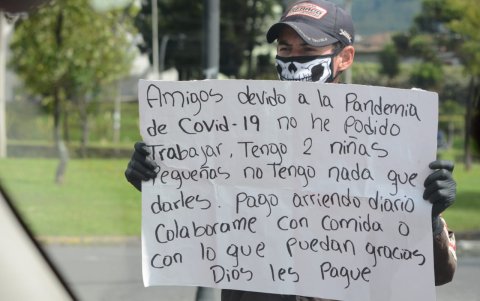 Amigos devido a la Pandemia
de Covid-19 no he Podido
Trabajar. Tengo 2 niñas
Pequeñas no Tengo nada que
darles. Pago arriendo diario
Colaborame con comida o
con lo que puedan gracias
Dios les Pague